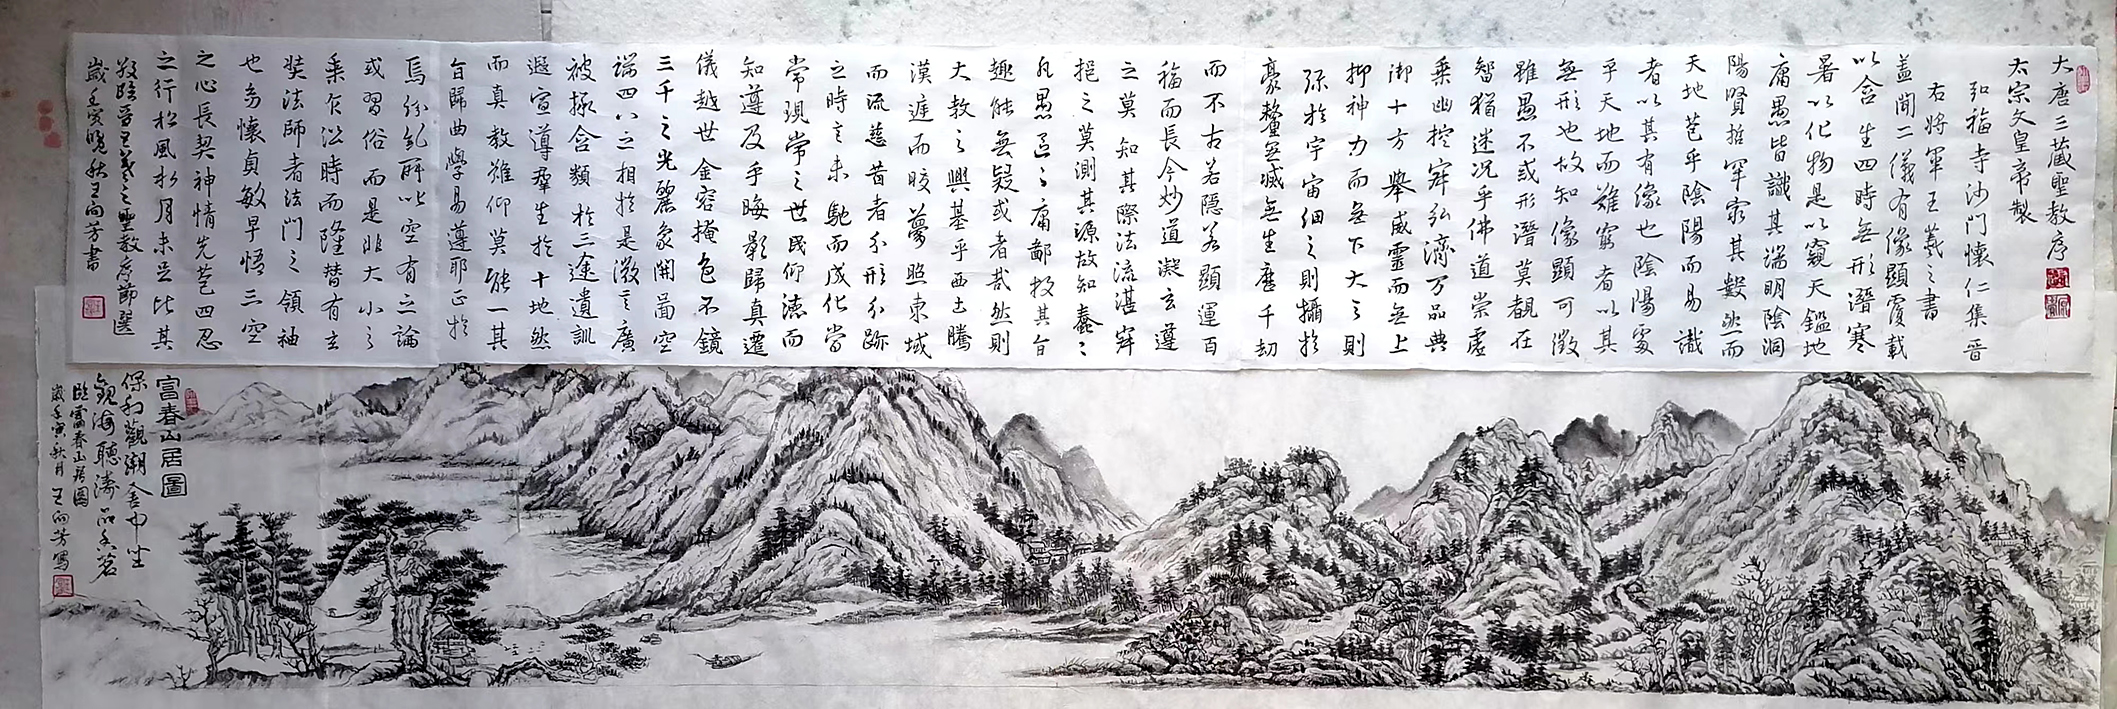 大唐三藏聖教序
太宗文皇帝製
弘福寺沙門懷仁集晉
右將軍王羲之書
蓋聞二儀有像顯覆載
以含生四時無形潛寒
暑以化物是以窺天鑑地
庸愚皆識其端明陰洞
陽賢哲罕窮其數然而
天地苞乎陰陽而易識
者以其有像也陰陽處
乎天地而難窮者以其
無形也故知像顯可徵
雖愚不或形潛莫覩在
智猶迷況乎佛道崇虛
乘幽控寂弘濟万品典
御十方舉威靈而無上
抑神力而無下大之則
彌於宇宙細之則攝於
豪釐無滅無生歷千劫
而不古若隱若顯運百
福而長今妙道凝玄遵
之莫知其際法流湛寂
挹之莫測其源故知蠢々
凡愚區々庸鄙投其旨
趣能無疑或者哉然則
大教之興基乎西土騰
漢庭而皎夢照東域
而流慈昔者分形分跡
之時言未馳而成化當
常現常之世民仰德而
知遵及乎晦影歸真遷
儀越世金容掩色不鏡
三千之光麗象開圖空
端四八之相於是微言廣
被拯含類於三途遺訓
遐宣導群生於十地然
而真教難仰莫能一其
旨歸曲學易遵耶正於
焉紛糺所以空有之論
或習俗而是非大小之
乘乍沿時而隆替有玄
奘法師者法門之領袖
也幼懷貞敏早悟三空
之心長契神情先苞四忍
之行松風水月未足比其
敬臨晉王羲之聖教序節選
歲壬寅晚秋王向芳書
富春山居圖
保利觀潮舍中坐
觀海聽濤品香茗
臨富春山居圖
歲壬寅秋月王向芳寫